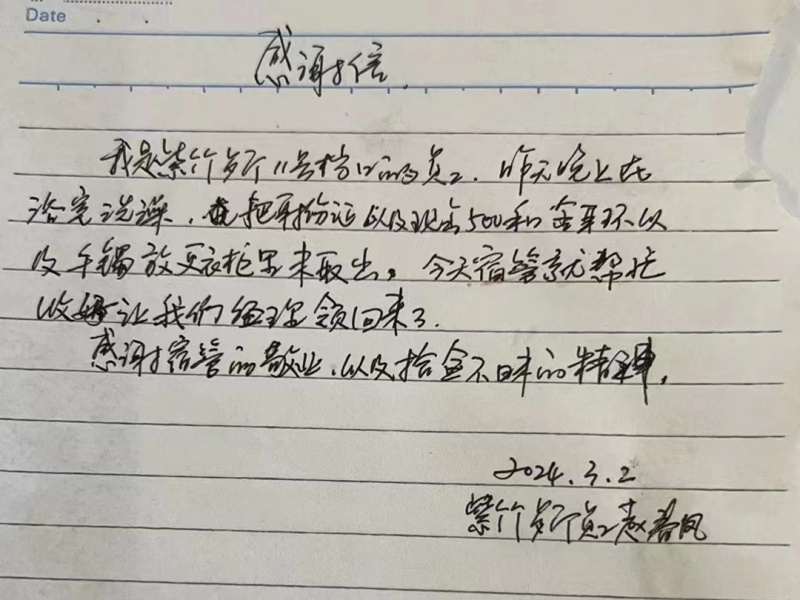 Date
感谢信.
我是紫竹岁厅11号档口的员工.昨天晚上在
浴室洗澡,把身份证以及现金500和金耳环以
及手镯放更衣柜里未取出。今天宿管就帮忙
收好让我们经理领回来了.
感谢宿管的敬业.以及拾金不昧的精神.
2024.3.2
紫竹岁厅员工赵春凤